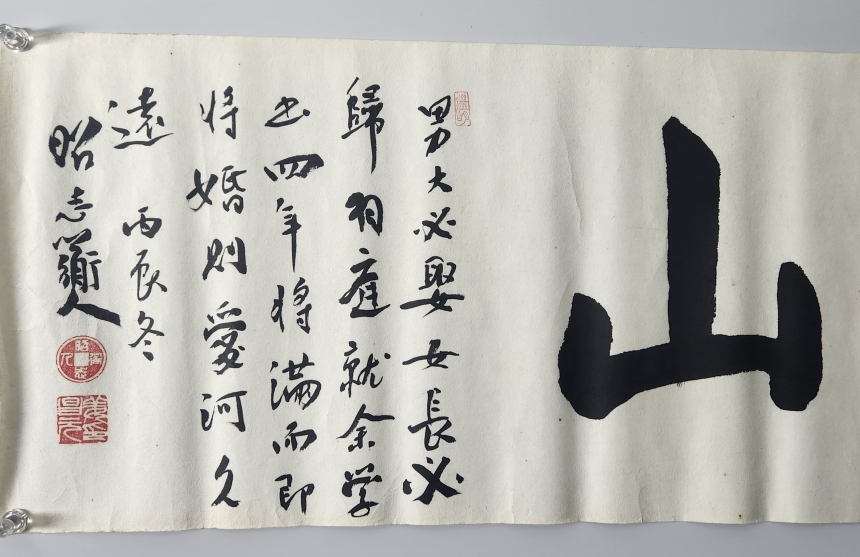 山
男大必娶女長必
歸羽庭就余学
书四年将滿而即
将婚則愛河久
遠 丙辰冬
昭志衡人